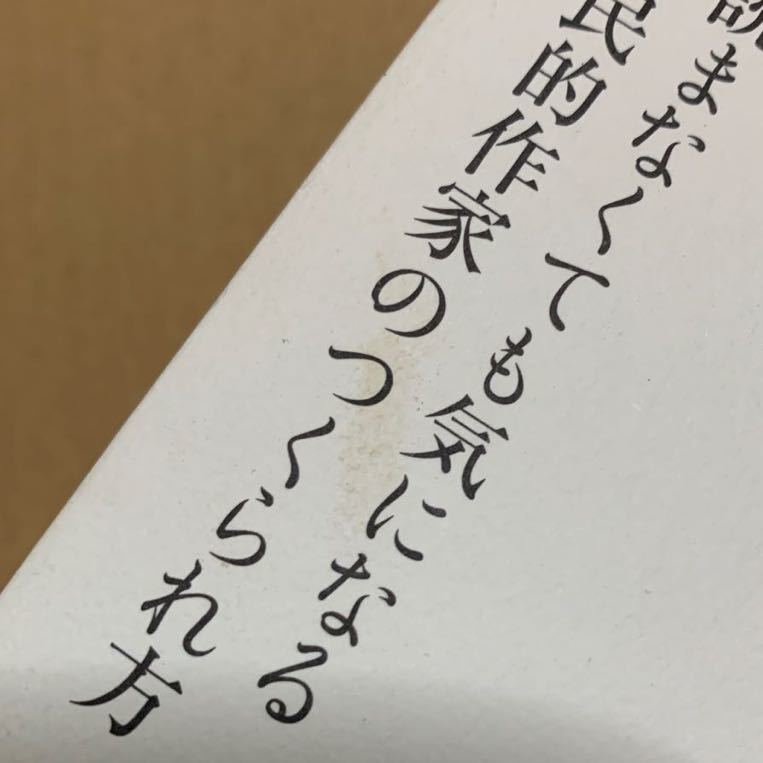 読まなくても気になる
民的作家のつくられ方